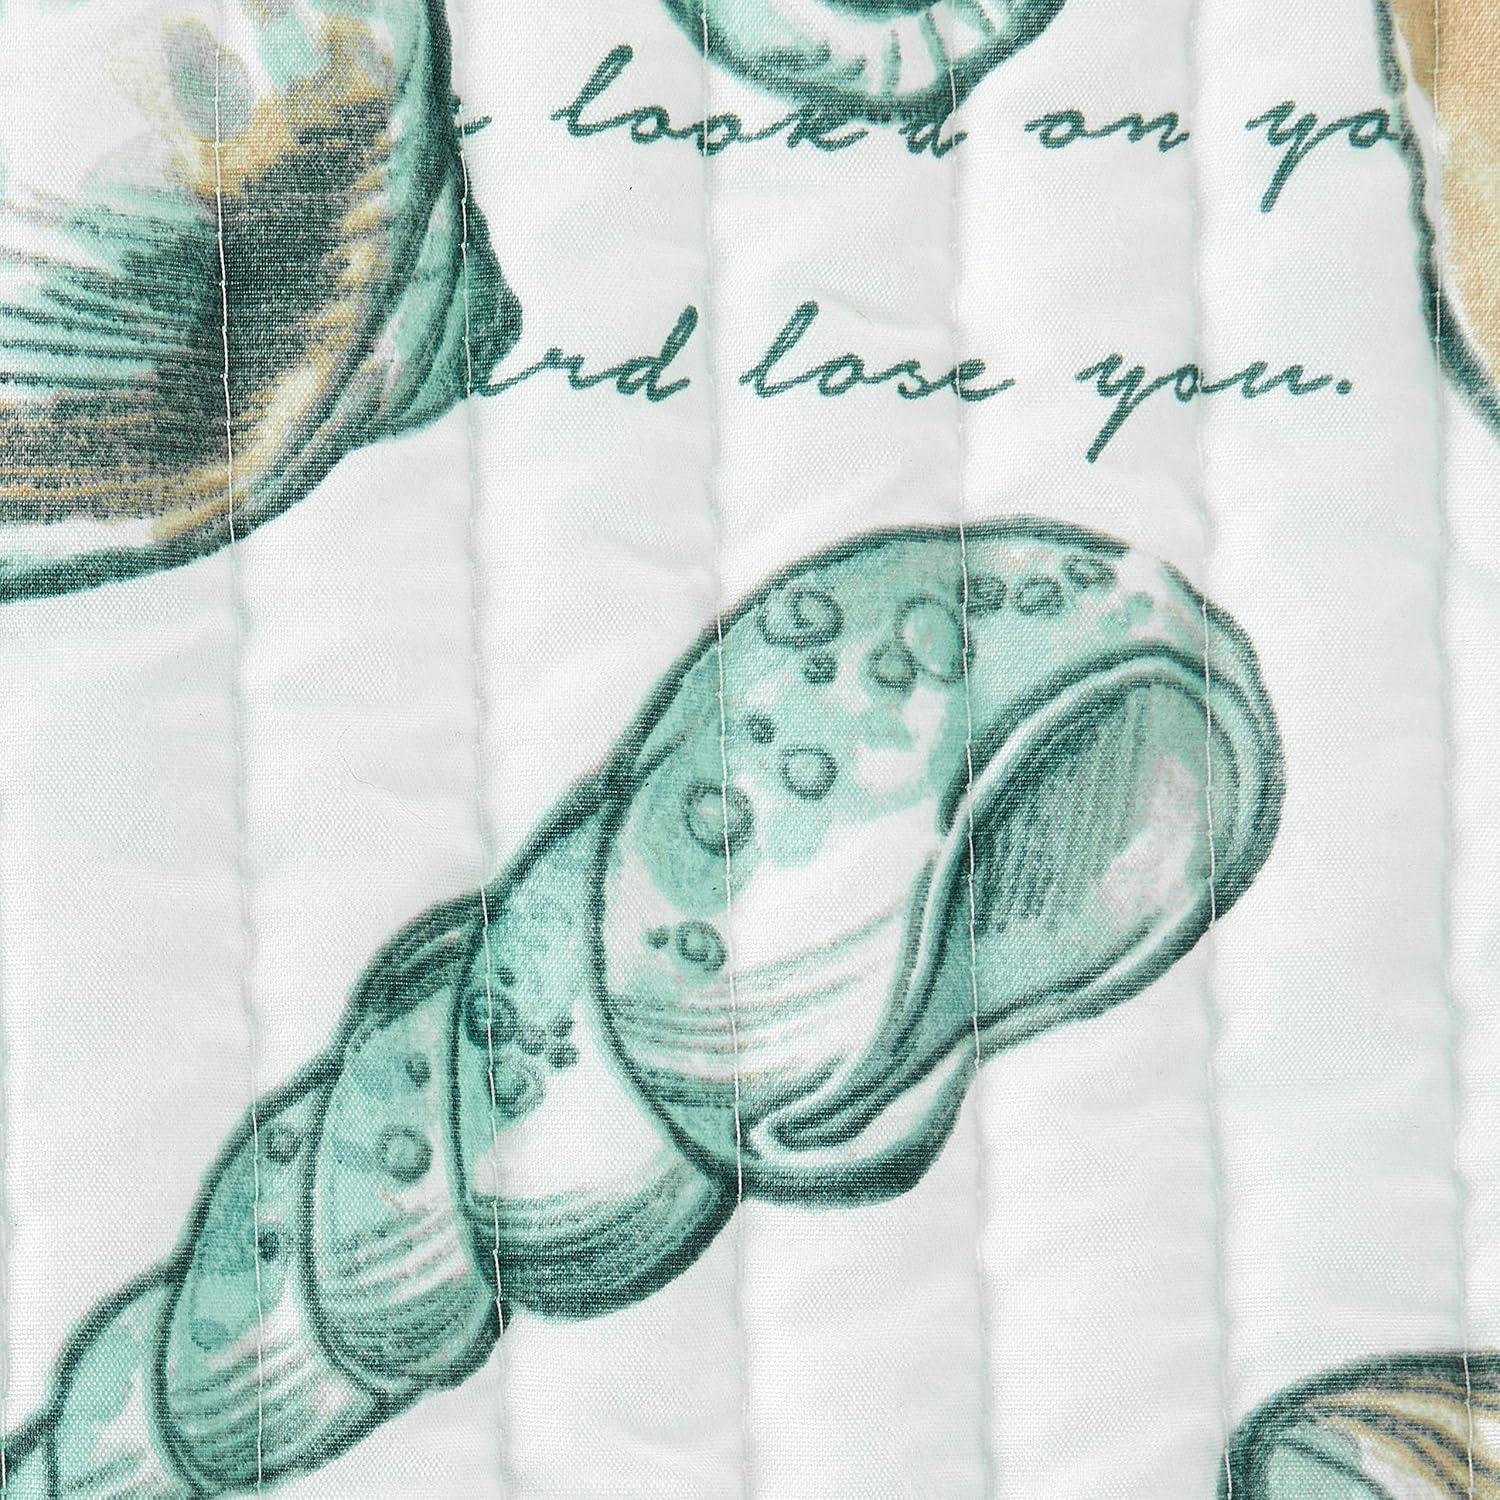 look'd on yo
rd lose you.